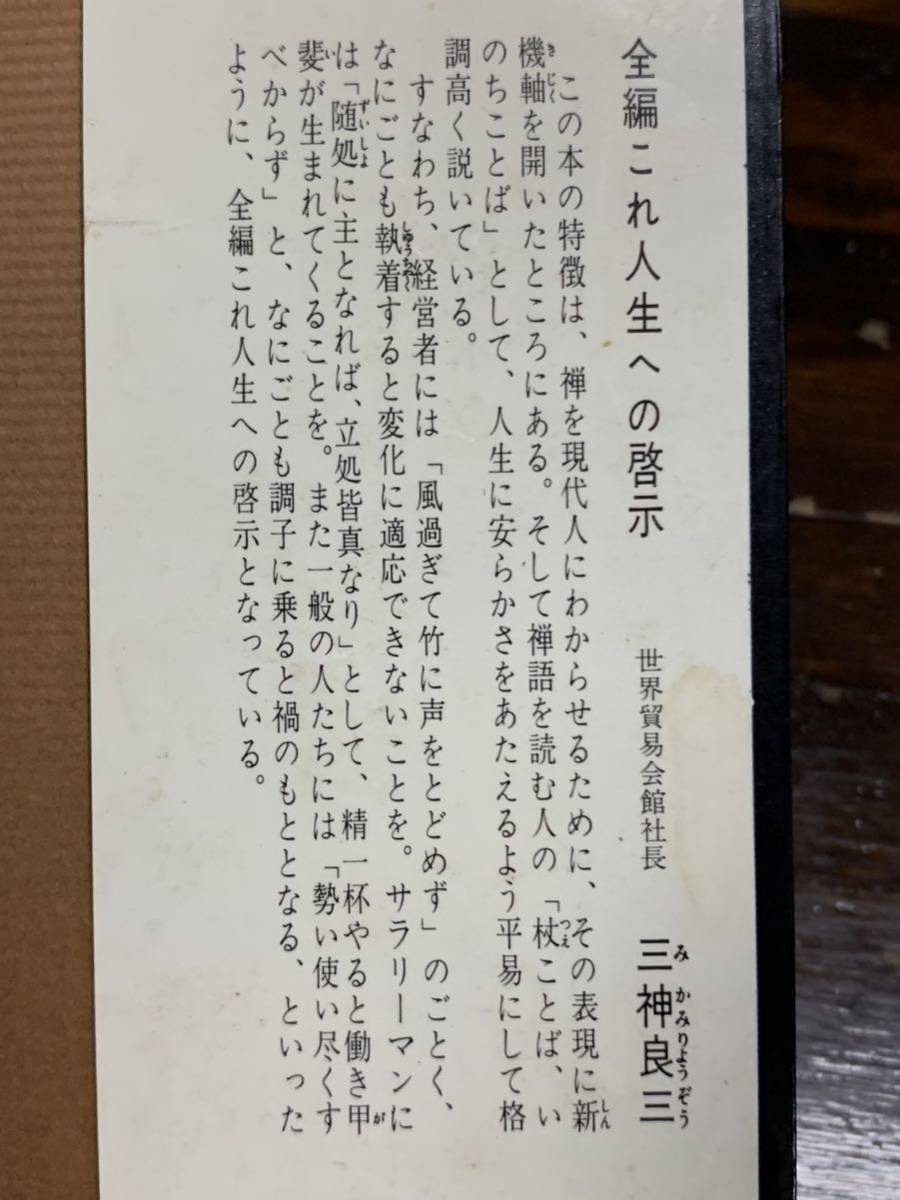 全編これ人生への啓示　世界貿易会館社長　三神良三
この本の特徴は、禅を現代人にわからせるために、その表現に新
機軸を開いたところにある。そして禅語を読む人の「杖ことば、い
のちことば」として、人生に安らかさをあたえるよう平易にして格
調高く説いている。
すなわち、経営者には「風過ぎて竹に声をとどめず」のごとく、
なにごとも執着すると変化に適応できないことを。サラリーマンに
は「随処に主となれば、立処皆真なり」として、精一杯やると働き甲
斐が生まれてくることを。また一般の人たちには「勢い使い尽くす
べからず」と、なにごとも調子に乗ると禍のもととなる、といった
ように、全編これ人生への啓示となっている。